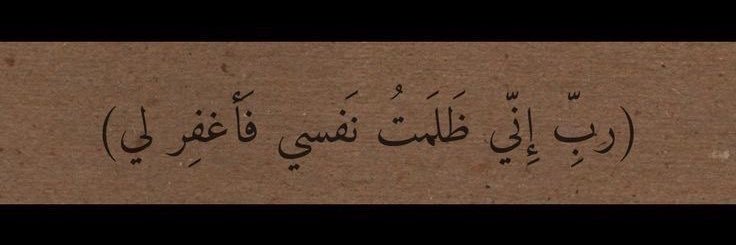 (ربِّ إِنّي ظَلَمتُ نَفسي فَأغفِر لي)